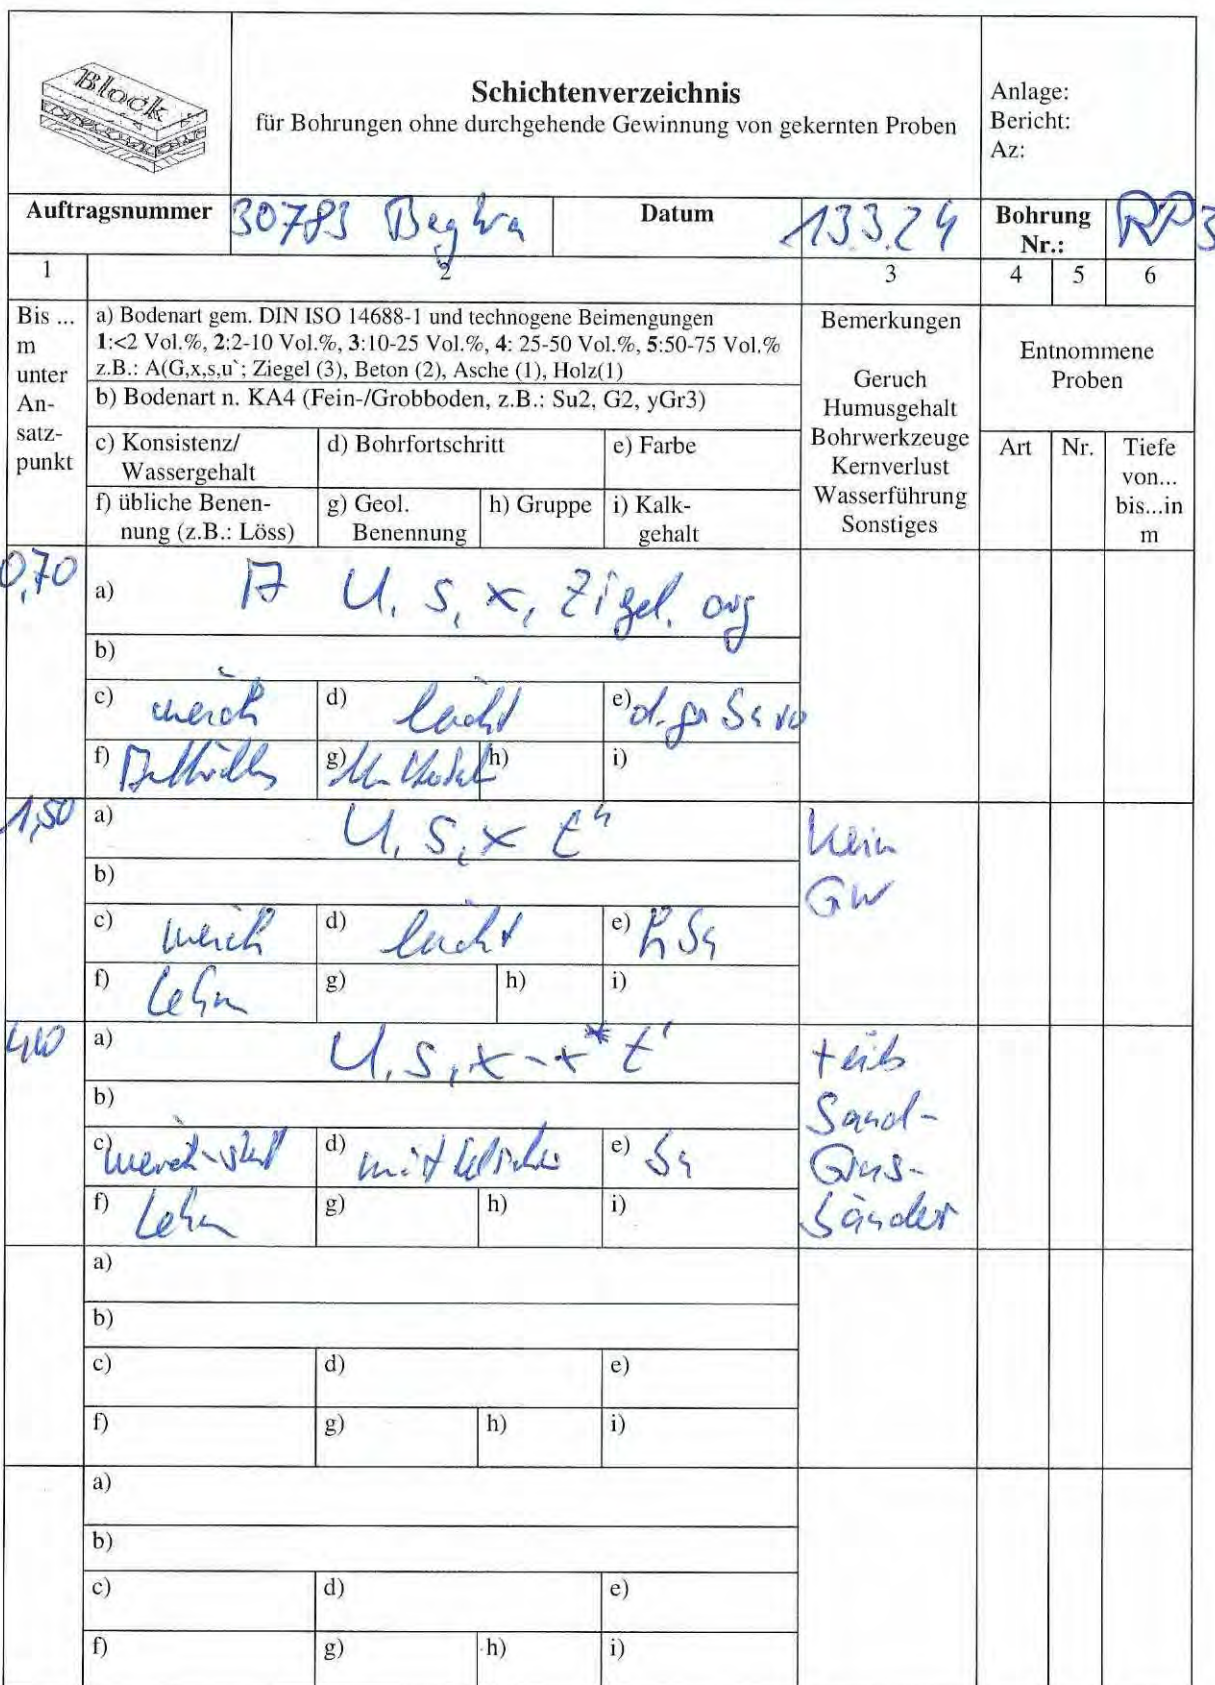 Block
Schichtenverzeichnis
für Bohrungen ohne durchgehende Gewinnung von gekernten Proben
Anlage:
Bericht:
Az:
Auftragsnummer 30783 Datum 13.3.24 Bohrung Nr.: RP3
1 2 3 4 5 6
Bis ...
m
unter
An-
satz-
punkt
a) Bodenart gem. DIN ISO 14688-1 und technogene Beimengungen
1:<2 Vol.%, 2:2-10 Vol.%, 3:10-25 Vol.%, 4: 25-50 Vol.%, 5:50-75 Vol.%
z.B.: A(G,x,s,u`; Ziegel (3), Beton (2), Asche (1), Holz(1)
b) Bodenart n. KA4 (Fein-/Grobboden, z.B.: Su2, G2, yGr3)
c) Konsistenz/
Wassergehalt
d) Bohrfortschritt
e) Farbe
f) übliche Benen-
nung (z.B.: Löss)
g) Geol.
Benennung
h) Gruppe
i) Kalk-
gehalt
Bemerkungen
Geruch
Humusgehalt
Bohrwerkzeuge
Kernverlust
Wasserführung
Sonstiges
Entnommene
Proben
Art
Nr.
Tiefe
von...
bis...in
m
0,70
a) A U, s, x, Zigel, org
b)
c) weich d) leicht e)
f) g) h) i)
1,50
a) U, s, x t"
b)
c) weich d) leicht e)
f) Lehm g) h) i)
kein
GW
a) U, s, x-x* t'
b)
c) weich- d) e)
f) Lehm g) h) i)
teils
Sand-
Grus-
bänder
a)
b)
c) d) e)
f) g) h) i)
a)
b)
c) d) e)
f) g) h) i)